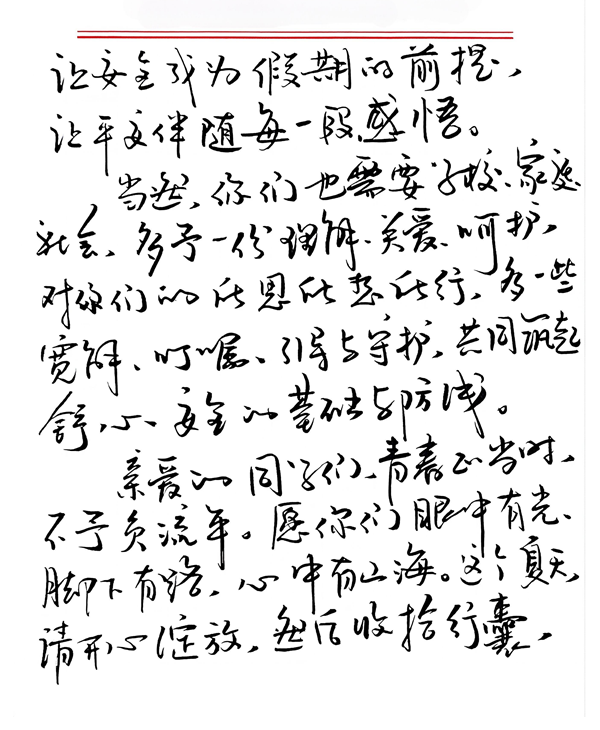 让安全成为假期的前提，
让平安伴随每一段感悟。
当然，你们也需要学校、家庭、
社会，多予一份理解、关爱、呵护，
对你们的所思所想所行，多一些
宽解、叮嘱、引导与守护，共同筑起
舒心、安全的基础与防线。
亲爱的同学们，青春正当时，
不予负流年。愿你们眼中有光、
脚下有路，心中有山海。这个夏天，
请开心绽放，然后收拾行囊，